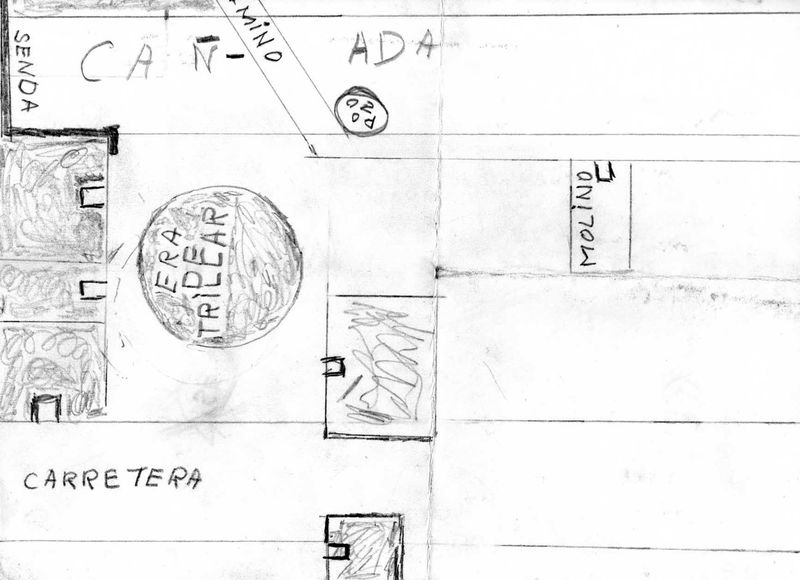 AMiNO
SENDA
CAÑ- ADA
PO
ZO
ERA
DE
TRiLLAR
MOLiNO
CARRETERA